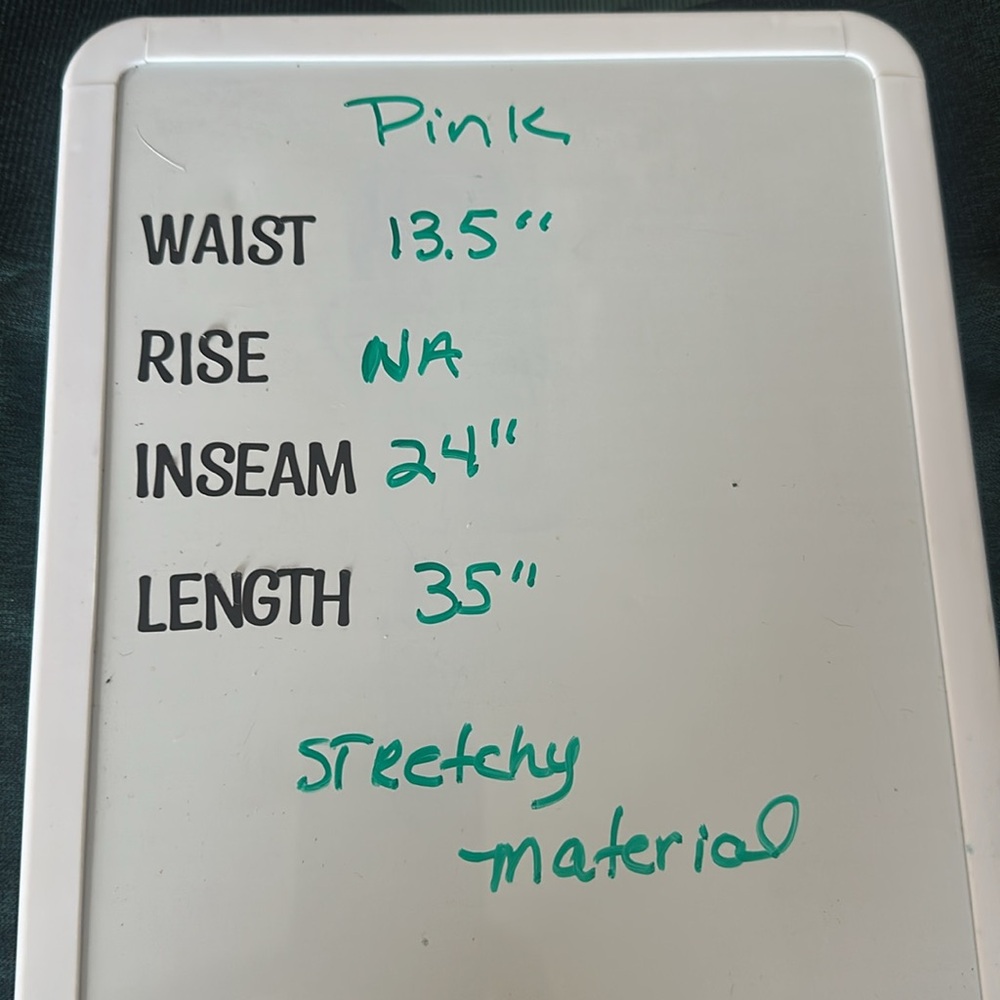 Pink
WAIST 13.5"
RISE NA
INSEAM 24"
LENGTH 35"
STRetchy
material